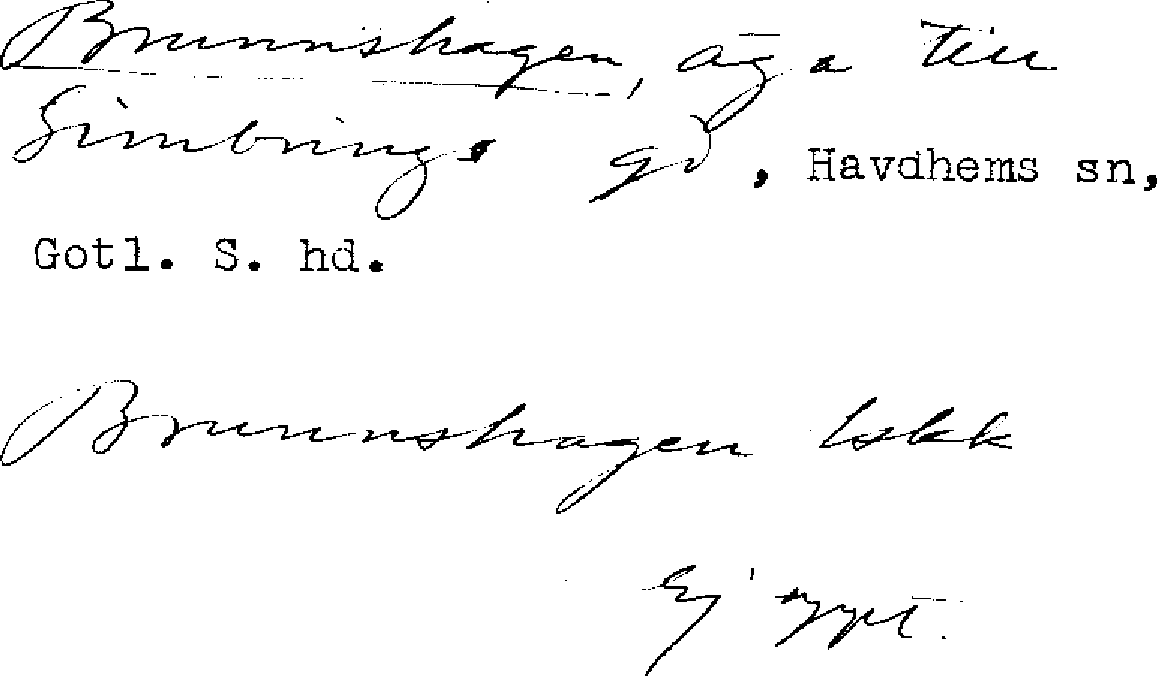 Brunnshagen, äga till
Simbrings gd, Havdhems sn,
Gotl. S. hd.
Brunnshagen lskk
Ej uppt.